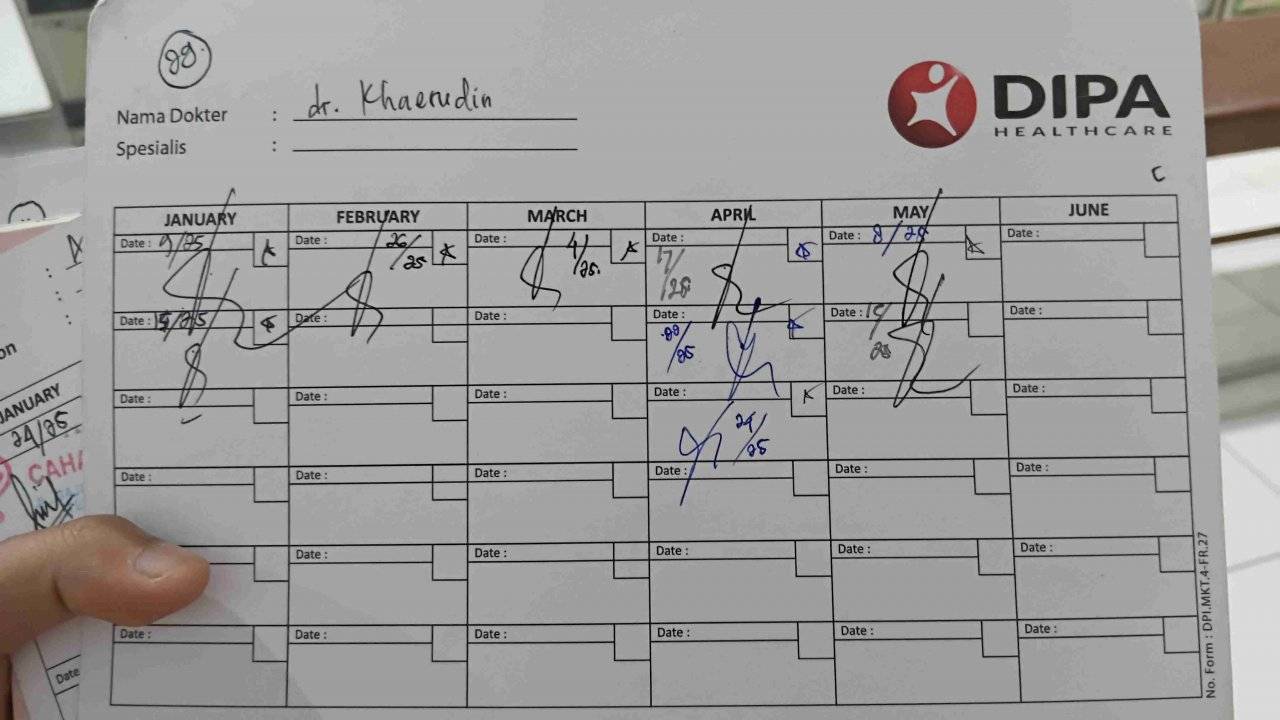 29.
Nama Dokter : dr. Khaerudin
Spesialis :
DIPA
HEALTHCARE
C
JANUARY FEBRUARY MARCH APRIL MAY JUNE
Date : 9/25 Date : 26/25 Date : 4/25. Date : 17/25 Date : 8/25 Date :
Date : 15/25 Date : Date : Date : 22/25 Date : 15/25 Date :
Date : Date : Date : 24/25 Date : Date :
Date : Date : Date : Date : Date : Date :
Date : Date : Date : Date : Date :
Date : Date : Date : Date : Date : Date :
No. Form : DPI.MKT.4-FR.27
on
JANUARY
24/25
CAHA
Date